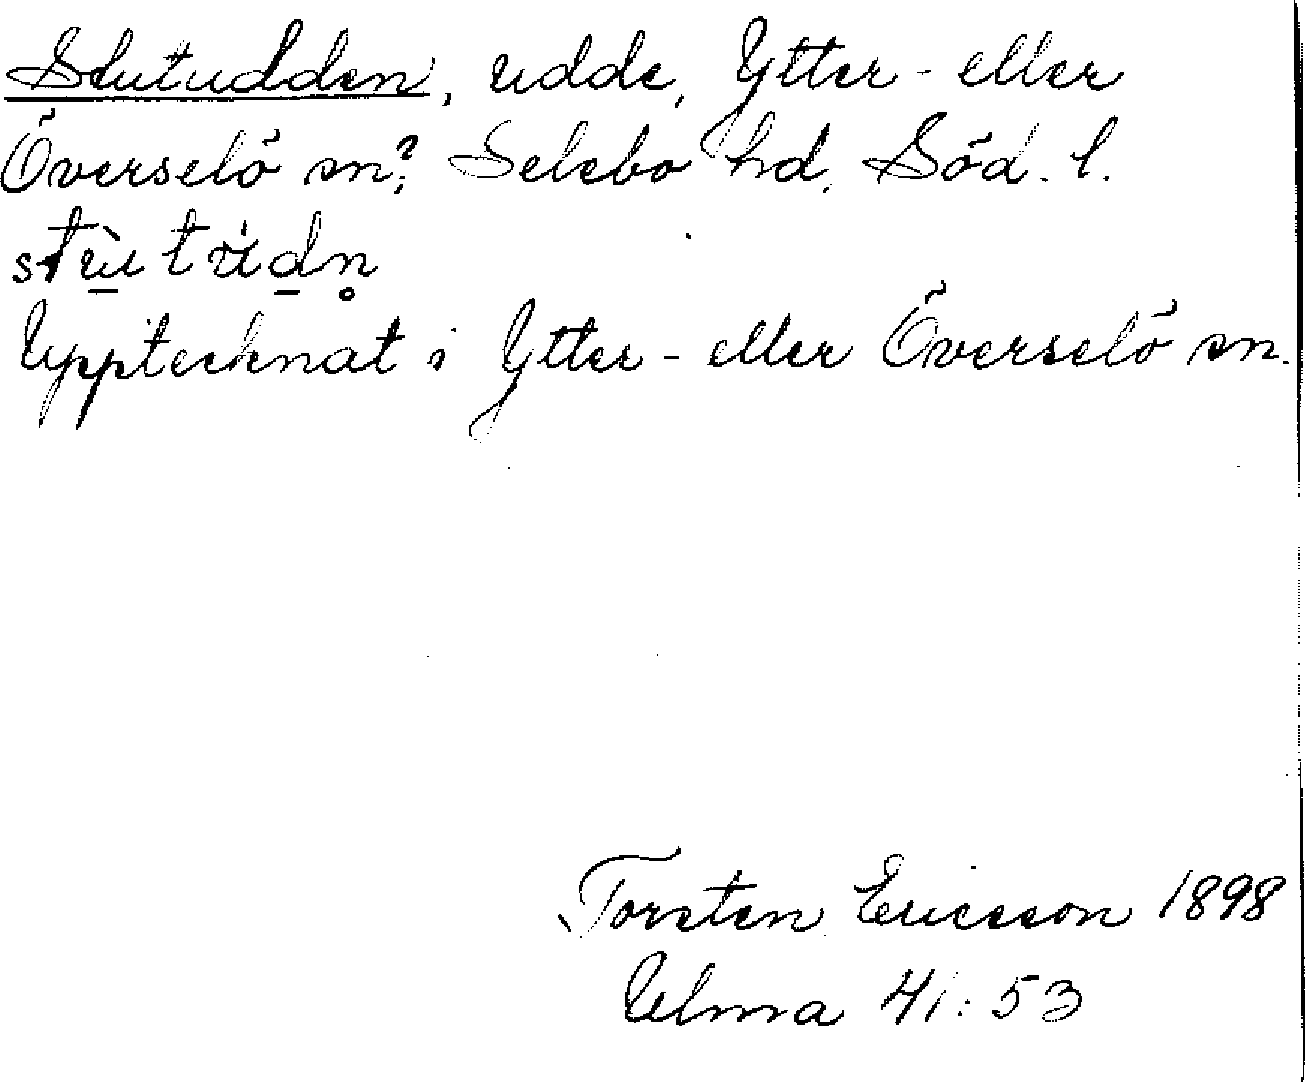 Stutudden, udde, Ytter- eller
Överselö sn? Selebo hd, Söd. l.
stù̱tu̇ḏn̥
Upptecknat i Ytter- eller Överselö sn.
Torsten Ericsson 1898
Ulma 41:53